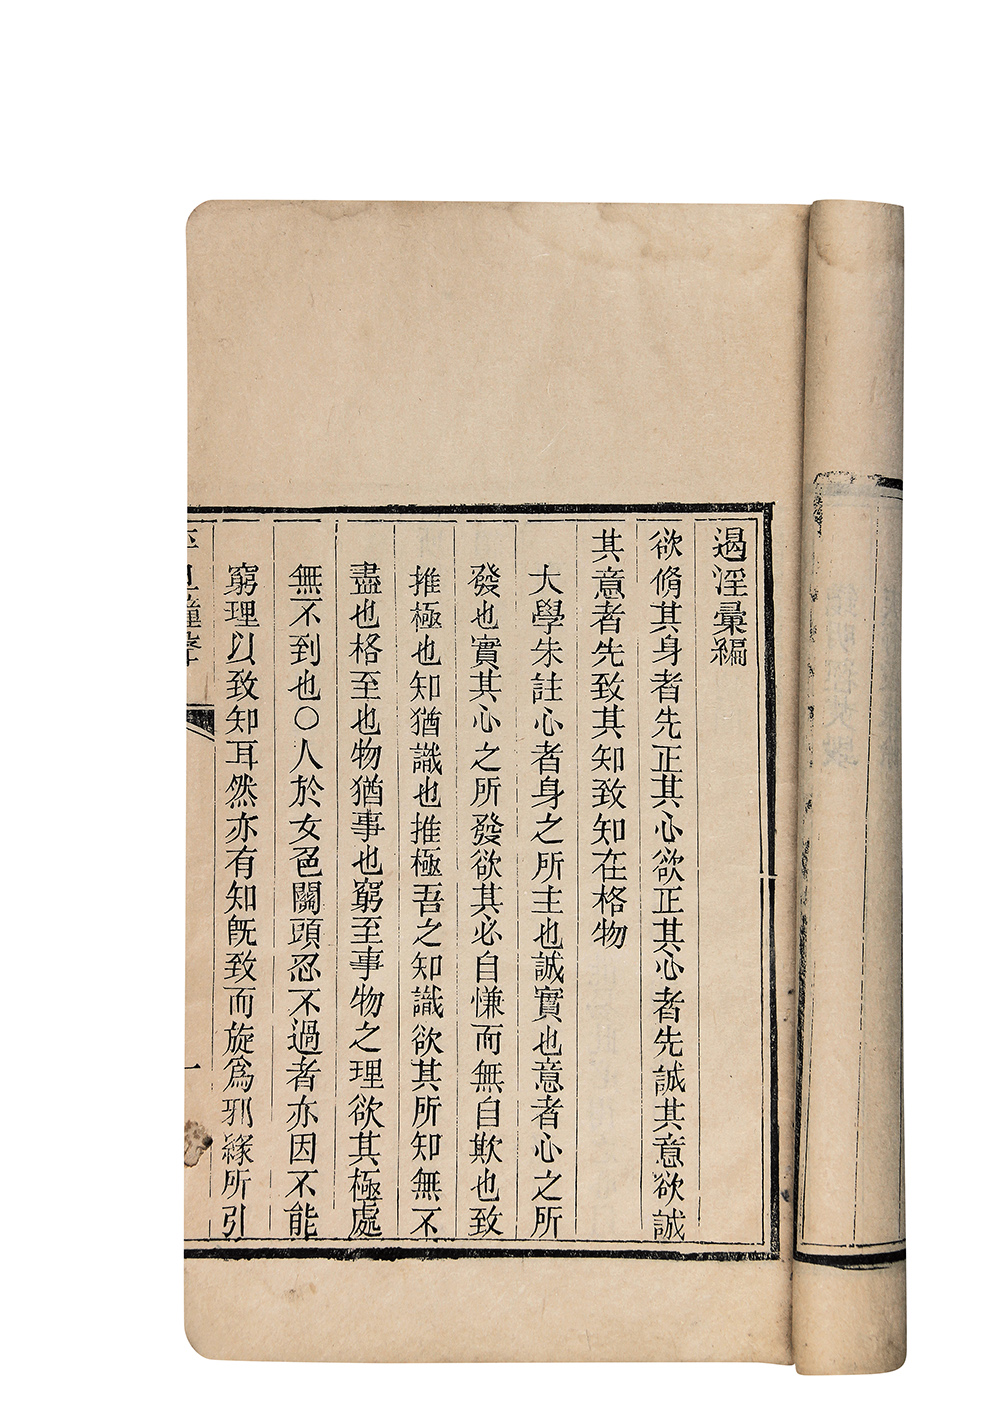 遏淫彙編
欲脩其身者先正其心欲正其心者先誠其意欲誠
其意者先致其知致知在格物
大學朱註心者身之所主也誠實也意者心之所
發也實其心之所發欲其必自慊而無自欺也致
推極也知猶識也推極吾之知識欲其所知無不
盡也格至也物猶事也窮至事物之理欲其極處
無不到也〇人於女色關頭忍不過者亦因不能
窮理以致知耳然亦有知旣致而旋爲邪緣所引
一